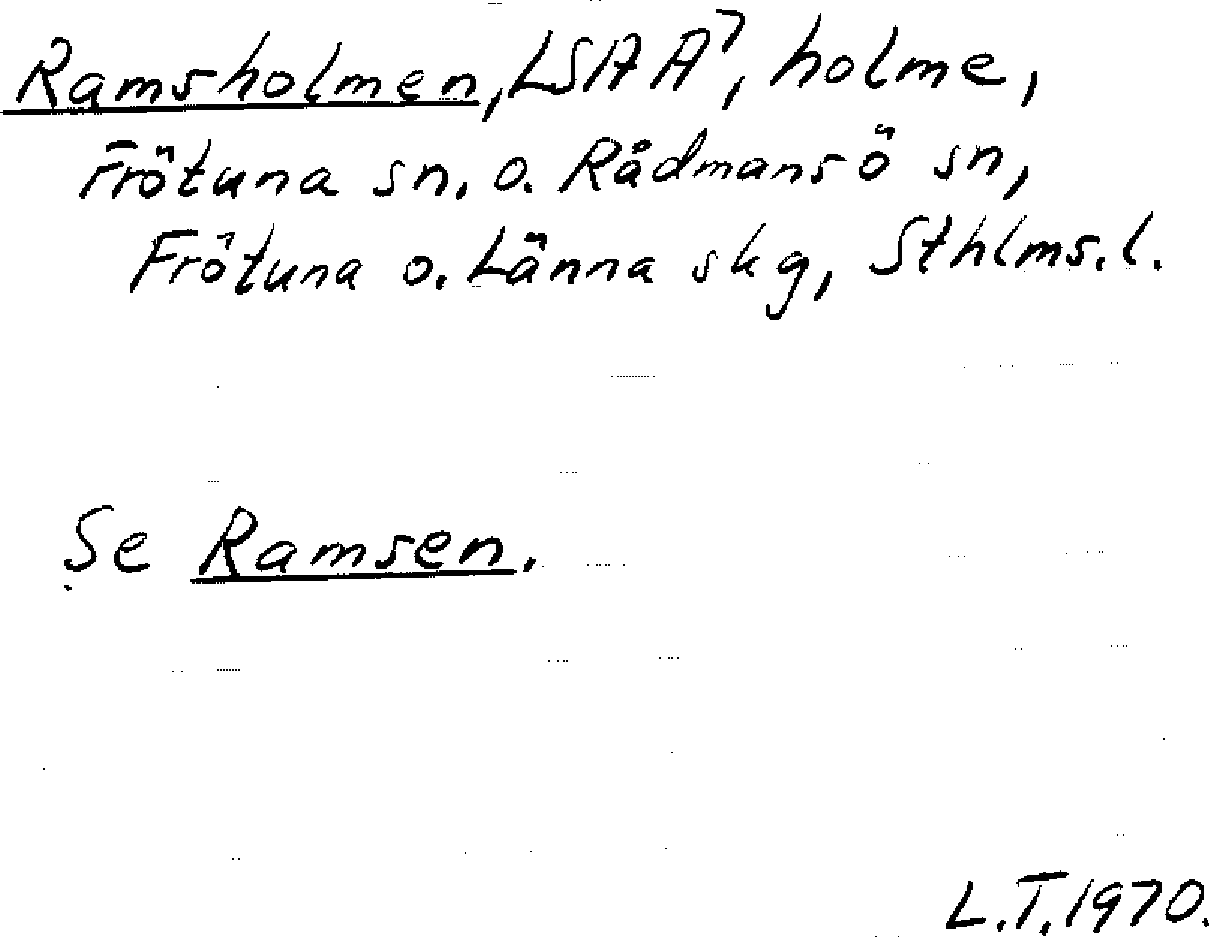 Ramsholmen, LSAA⁷, holme,
Frötuna sn. o. Rådmansö sn,
Frötuna o. Länna skg, Sthlms. l.
Se Ramsen.
L.T. 1970.